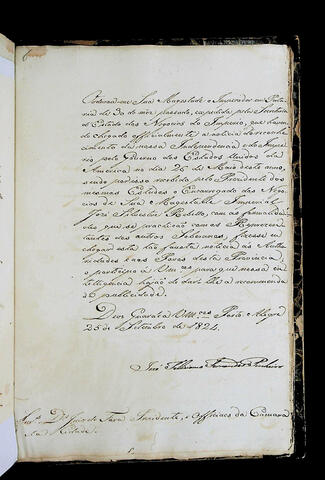 Ordenando Sua Magestade o Imperador em Porta
ria de 30 do mez passado, expedida pela Secretaria
d'Estado dos Negocios do Imperio, que havendo
chegado officialmente a noticia do reconhe
cimento da nossa Independencia e do Impe
rio pelo Governo dos Estados Unidos da
America no dia 26 de Maio deste anno,
sendo recebido pelo Presidente dos
mesmos Estados o Encarregado dos Nego
cios de Sua Magestade Imperial
José Silvestre Rebello, com as formalida
des que se practicão com os Represen
tantes dos outros Soberanos, fizesse eu
chegar esta tão fausta noticia ás Autho
ridades e aos Povos desta Provincia,
o participo a Vm.ces para que nessa in
telligencia hajão de dar-lhe a recommenda
da publicidade.
Deos Guarde a Vm.ces Porto Alegre
25 de Setembro de 1824.
José Feliciano Fernandes Pinheiro
Snr.s D.r Juiz de Fora Presidente, e Officiaes da Camara
da Cidade.